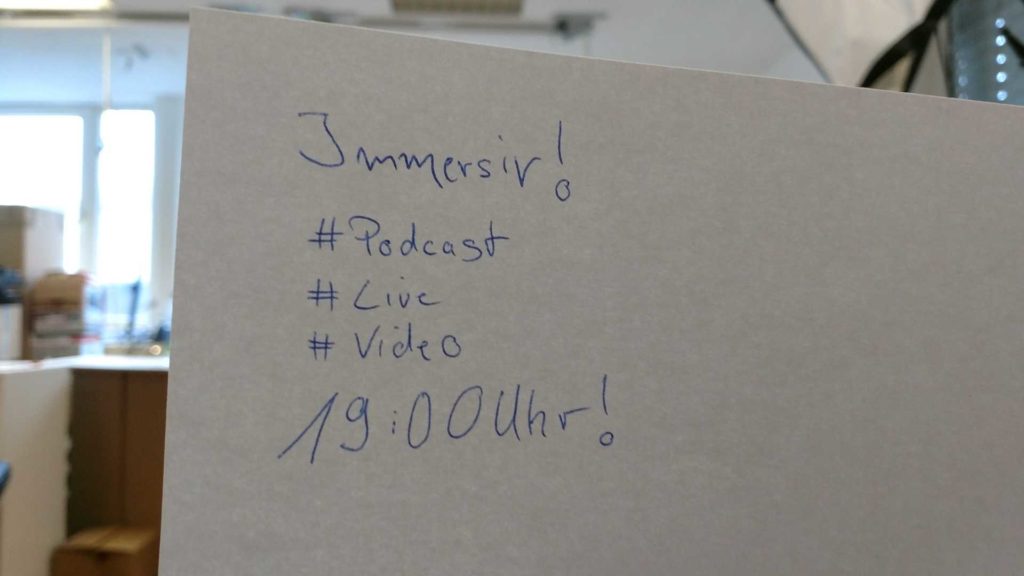 Immersiv!
#Podcast
# Live
# Video
19:00 Uhr!